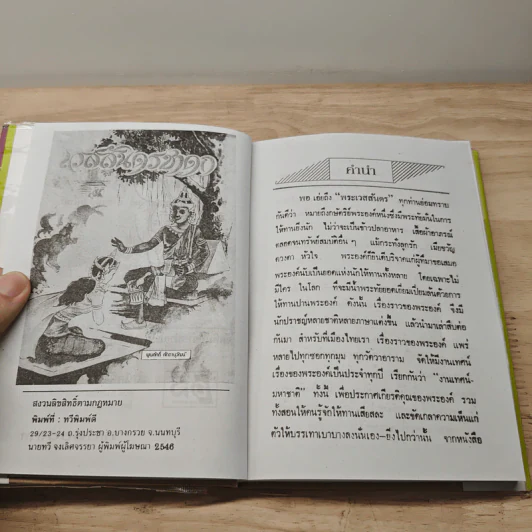 เวสสันดรชาดก
พูนศักดิ์ ศักดานุวัฒน์
สงวนลิขสิทธิ์ตามกฎหมาย
พิมพ์ที่ : ทวีพิมพ์ดี
29/23-24 ถ.รุ่งประชา อ.บางกรวย จ.นนทบุรี
นายทวี จงเลิศจรรยา ผู้พิมพ์ผู้โฆษณา 2546
คำนำ
พอเอ่ยถึง "พระเวสสันดร" ทุกท่านย่อมทราบ
กันดีว่า หมายถึงกษัตริย์พระองค์หนึ่งซึ่งมีพระทัยมั่นในการ
ให้ทานยิ่งนัก ไม่ว่าจะเป็นข้าวปลาอาหาร เสื้อผ้าอาภรณ์
ตลอดจนทรัพย์สมบัติอื่น ๆ แม้กระทั่งลูกรัก เมียขวัญ
ดวงตา หัวใจ พระองค์ก็ยินดีบริจาคแก่ผู้ที่มาขอเสมอ
พระองค์นับเป็นยอดแห่งนักให้ทานทั้งหลาย โดยเฉพาะไม่
มีใคร ในโลก ที่จะมีน้ำพระทัยยอดเยี่ยมเปี่ยมล้นด้วยการ
ให้ทานปานพระองค์ ดังนั้น เรื่องราวของพระองค์ จึงมี
นักปราชญ์หลายชาติหลายภาษาแต่งขึ้น แล้วนำมาเล่าสืบต่อ
กันมา สำหรับที่เมืองไทยเรา เรื่องราวของพระองค์ แพร่
หลายไปทุกซอกทุกมุม ทุกวัดวาอาราม จัดให้มีงานเทศน์
เรื่องของพระองค์เป็นประจำทุกปี เรียกกันว่า "งานเทศน์-
มหาชาติ" ทั้งนี้ เพื่อประกาศเกียรติคุณของพระองค์ รวม
ทั้งสอนให้คนรู้จักให้ทานเสียสละ และขัดเกลาความเห็นแก่
ตัวให้บรรเทาเบาบางลงนั่นเอง-ยิ่งไปกว่านั้น จากหนังสือ